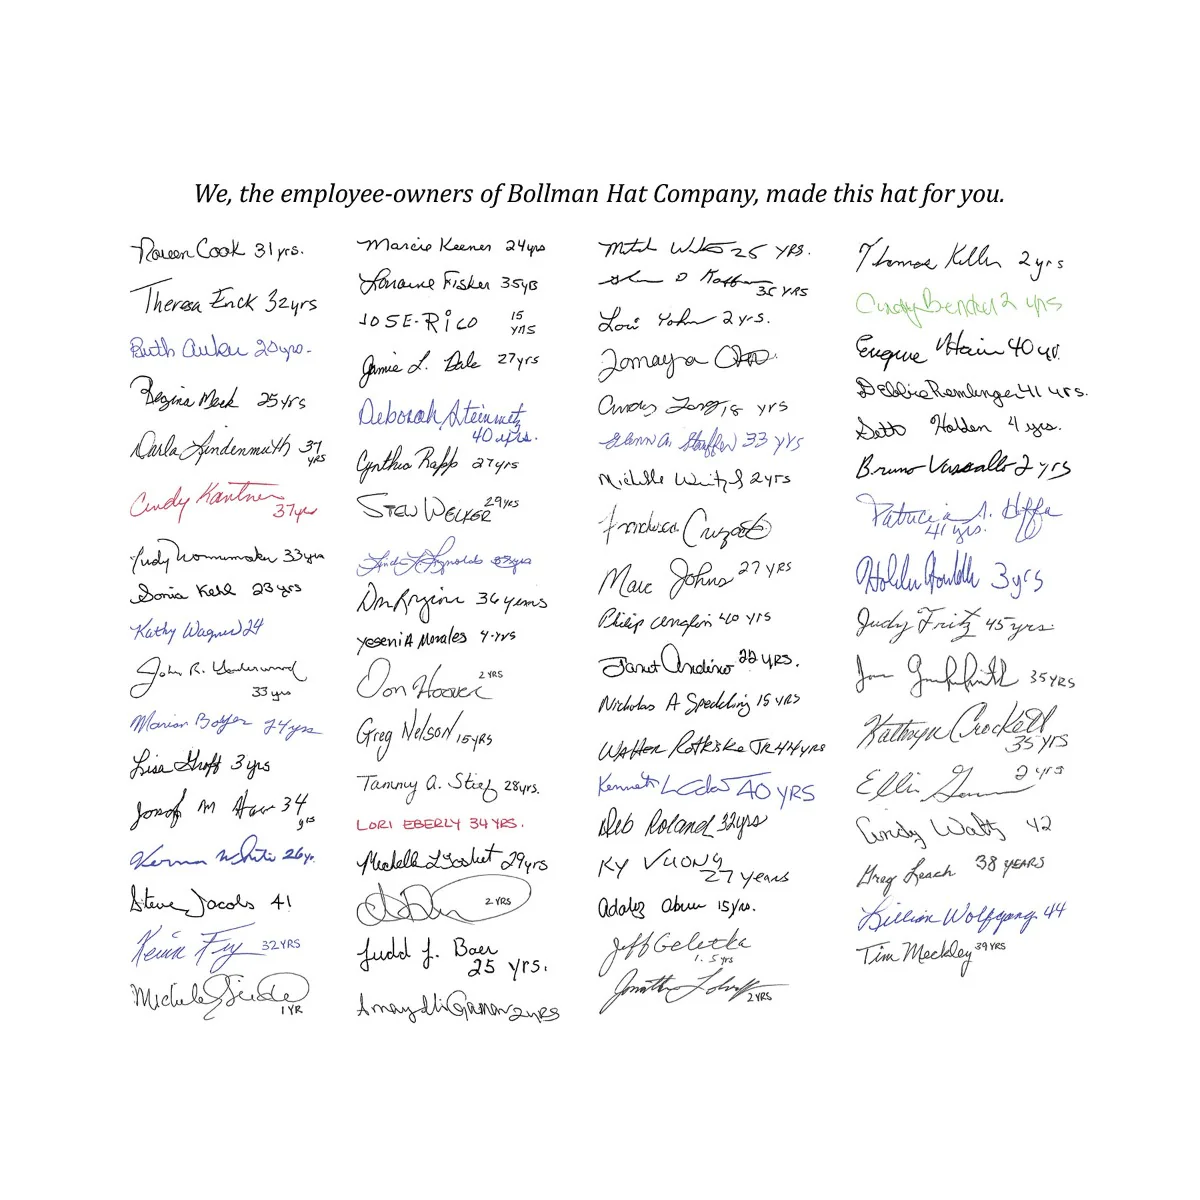 We, the employee-owners of Bollman Hat Company, made this hat for you.
Cook 31 yrs.
Theresa Enck 32 yrs
Ruth Auker 20 yrs.
Regina Meck 25 yrs
Darla Lindenmuth 37
YRS
Cindy Kantner
37 yrs
Judy 33 yrs
Sonia Kehl 23 yrs
Kathy Wagner 24
John R.
33 yrs
Marian Boyer 24 yrs
Lisa Groff 3 yrs
Josef M 34
yrs
26 yr.
Steve Jacobs 41
Kevin Fry 32 YRS
Michele
1 YR
Marcie Keener 24 yrs
Lorraine Fisher 35 yrs
JOSE-RICO 15
yrs
Jamie L. Dale 27 yrs
Deborah Steinmetz
40 yrs.
Cynthia Rapp 27 yrs
STEW WELKER 29 YRS
Linda L Reynolds 33 yrs
36 years
YeseniA Morales 4 yrs
Don Hoover 2 YRS
Greg Nelson 15 YRS
Tammy A. Stief 28 yrs.
LORI EBERLY 34 YRS.
Mechelle 29 yrs
2 YRS
Judd J. Baer
25 yrs.
2 YRS
Mitch 25 YRS.
35 YRS
Lori Yohn 2 yrs.
Tomayra
Cindy 18 yrs
Glenn A. Stauffer 33 yrs
Michelle 2 yrs
Francisca
Marc Johns 27 YRS
Philip 40 yrs
Janet Andino 22 YRS.
Nicholas A Speckling 15 YRS
Walter Rothiske JR 44 yrs
Kenneth 40 YRS
Deb Roland 32 yrs
KY VUONG
27 years
15 yrs.
Jeff Geletka
1.5 yrs
Jonathan
2 YRS
Thomas Keller 2 yrs
Cindy Bender 2 yrs
Eugene Hain 40 yr.
Debbie Remlinger 41 yrs.
Seth Holden 4 yrs.
Bruno Vassallo 2 yrs
Patricia A. Hoffa
41 yrs.
3 yrs
Judy Fritz 45 yrs.
35 YRS
Kathryn Crockett
35 YRS
2 yrs
Cindy Waltz 42
Greg Leach 38 YEARS
Lillian Wolfgang 44
Tim Meckley 39 YRS